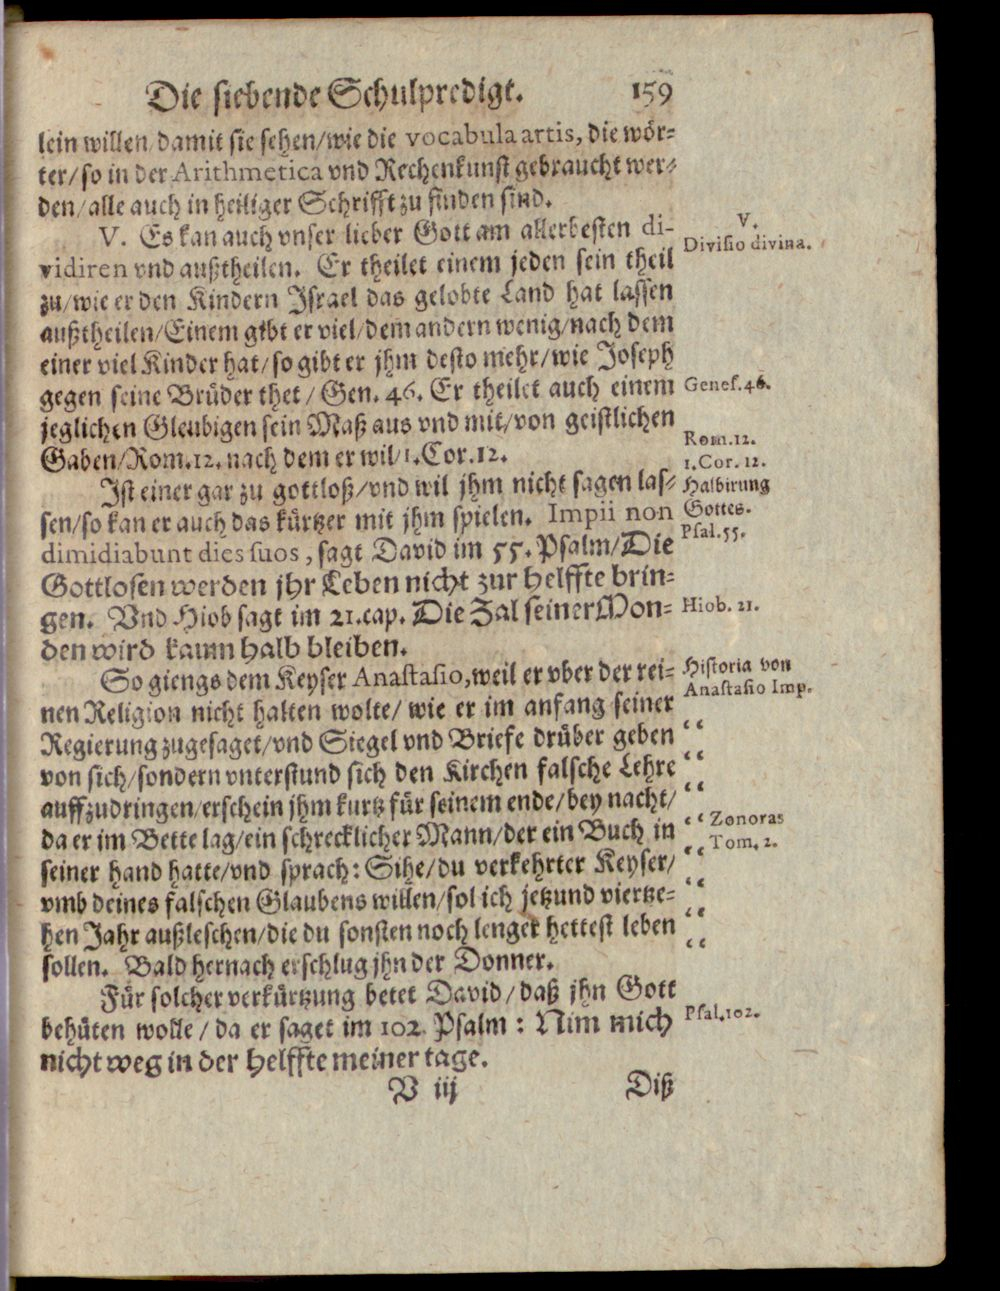 Die siebende Schulpredigt. 159
lein willen/damit sie sehen/wie die vocabula artis, die wör-
ter/so in der Arithmetica vnd Rechenkunst gebraucht wer-
den/alle auch in heiliger Schrifft zu finden sind.
V. Es kan auch vnser lieber Gott am allerbesten di-
vidiren vnd außtheilen. Er theilet einem jeden sein theil
zu/wie er den Kindern Israel das gelobte Land hat lassen
außtheilen/Einem gibt er viel/dem andern wenig/nach dem
einer viel Kinder hat/so gibt er jhm desto mehr/wie Joseph
gegen seine Brüder thet/Gen. 46. Er theilet auch einem
jeglichen Gleubigen sein Maß aus vnd mit/von geistlichen
Gaben/Rom.12. nach dem er wil/1.Cor.12.
Ist einer gar zu gottloß/vnd wil jhm nicht sagen las-
sen/so kan er auch das kürtzer mit jhm spielen. Impii non
dimidiabunt dies suos, sagt David im 55. Psalm/Die
Gottlosen werden jhr Leben nicht zur helffte brin-
gen. Vnd Hiob sagt im 21.cap. Die Zal seiner Mon-
den wird kaum halb bleiben.
So giengs dem Keyser Anastasio, weil er vber der rei-
nen Religion nicht halten wolte/wie er im anfang seiner
Regierung zugesaget/vnd Siegel vnd Briefe drüber geben
von sich/sondern vnterstund sich den Kirchen falsche Lehre
auffzudringen/erschein jhm kurtz für seinem ende/bey nacht/
da er im Bette lag/ein schrecklicher Mann/der ein Buch in
seiner hand hatte/vnd sprach: Sihe/du verkehrter Keyser/
vmb deines falschen Glaubens willen/sol ich jetzund viertze-
hen Jahr außleschen/die du sonsten noch lenger hettest leben
sollen. Bald hernach erschlug jhn der Donner.
Für solcher verkürtzung betet David/daß jhn Gott
behüten wolle/da er saget im 102. Psalm: Nim mich
nicht weg in der helffte meiner tage.
V iij Diß
V.
Divisio divina.
Genes.46.
Rom.12.
1.Cor.12.
Halbirung
Gottes.
Psal.55.
Hiob.21.
Historia von
Anastasio Imp.
“
“
“
“ Zonoras
“ Tom. 2.
“
“
“
Psal.102.